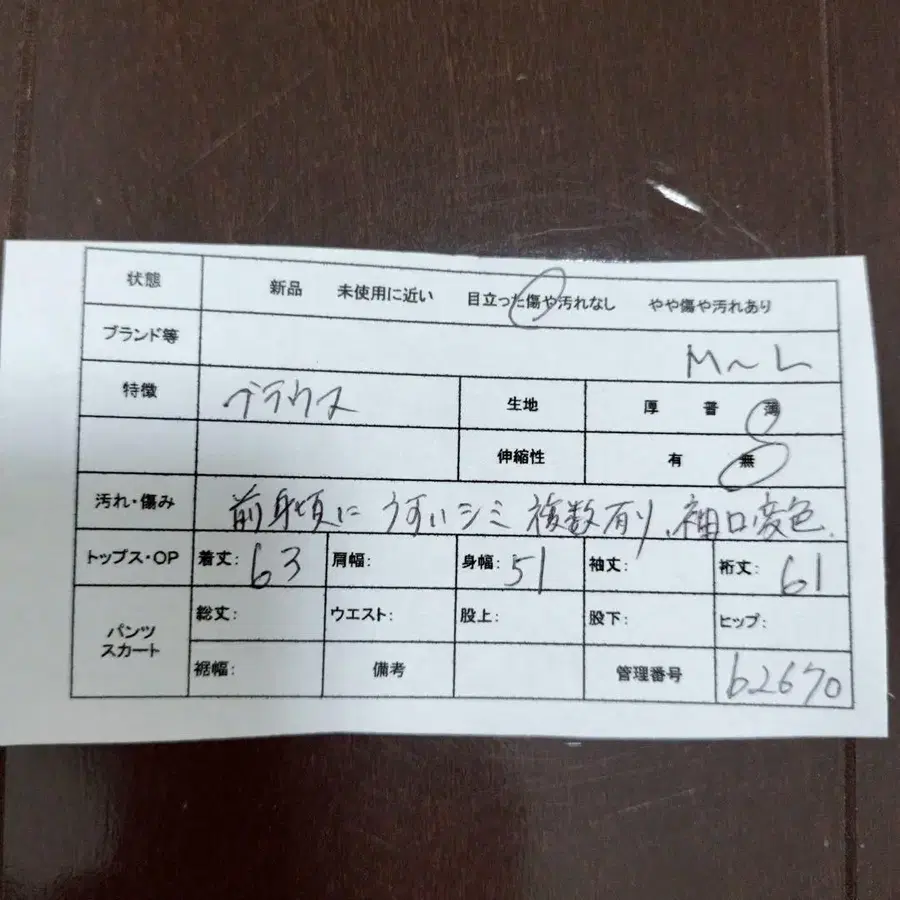 状態 新品 未使用に近い 目立った傷や汚れなし やや傷や汚れあり
ブランド等 M～L
特徴 ブラウス 生地 厚 普 薄
伸縮性 有 無
汚れ・傷み 前身頃に うすいシミ 複数有り、袖口変色.
トップス・OP 着丈: 63 肩幅: 身幅: 51 袖丈: 裄丈: 61
パンツ スカート 総丈: ウエスト: 股上: 股下: ヒップ:
裾幅: 備考 管理番号 62670